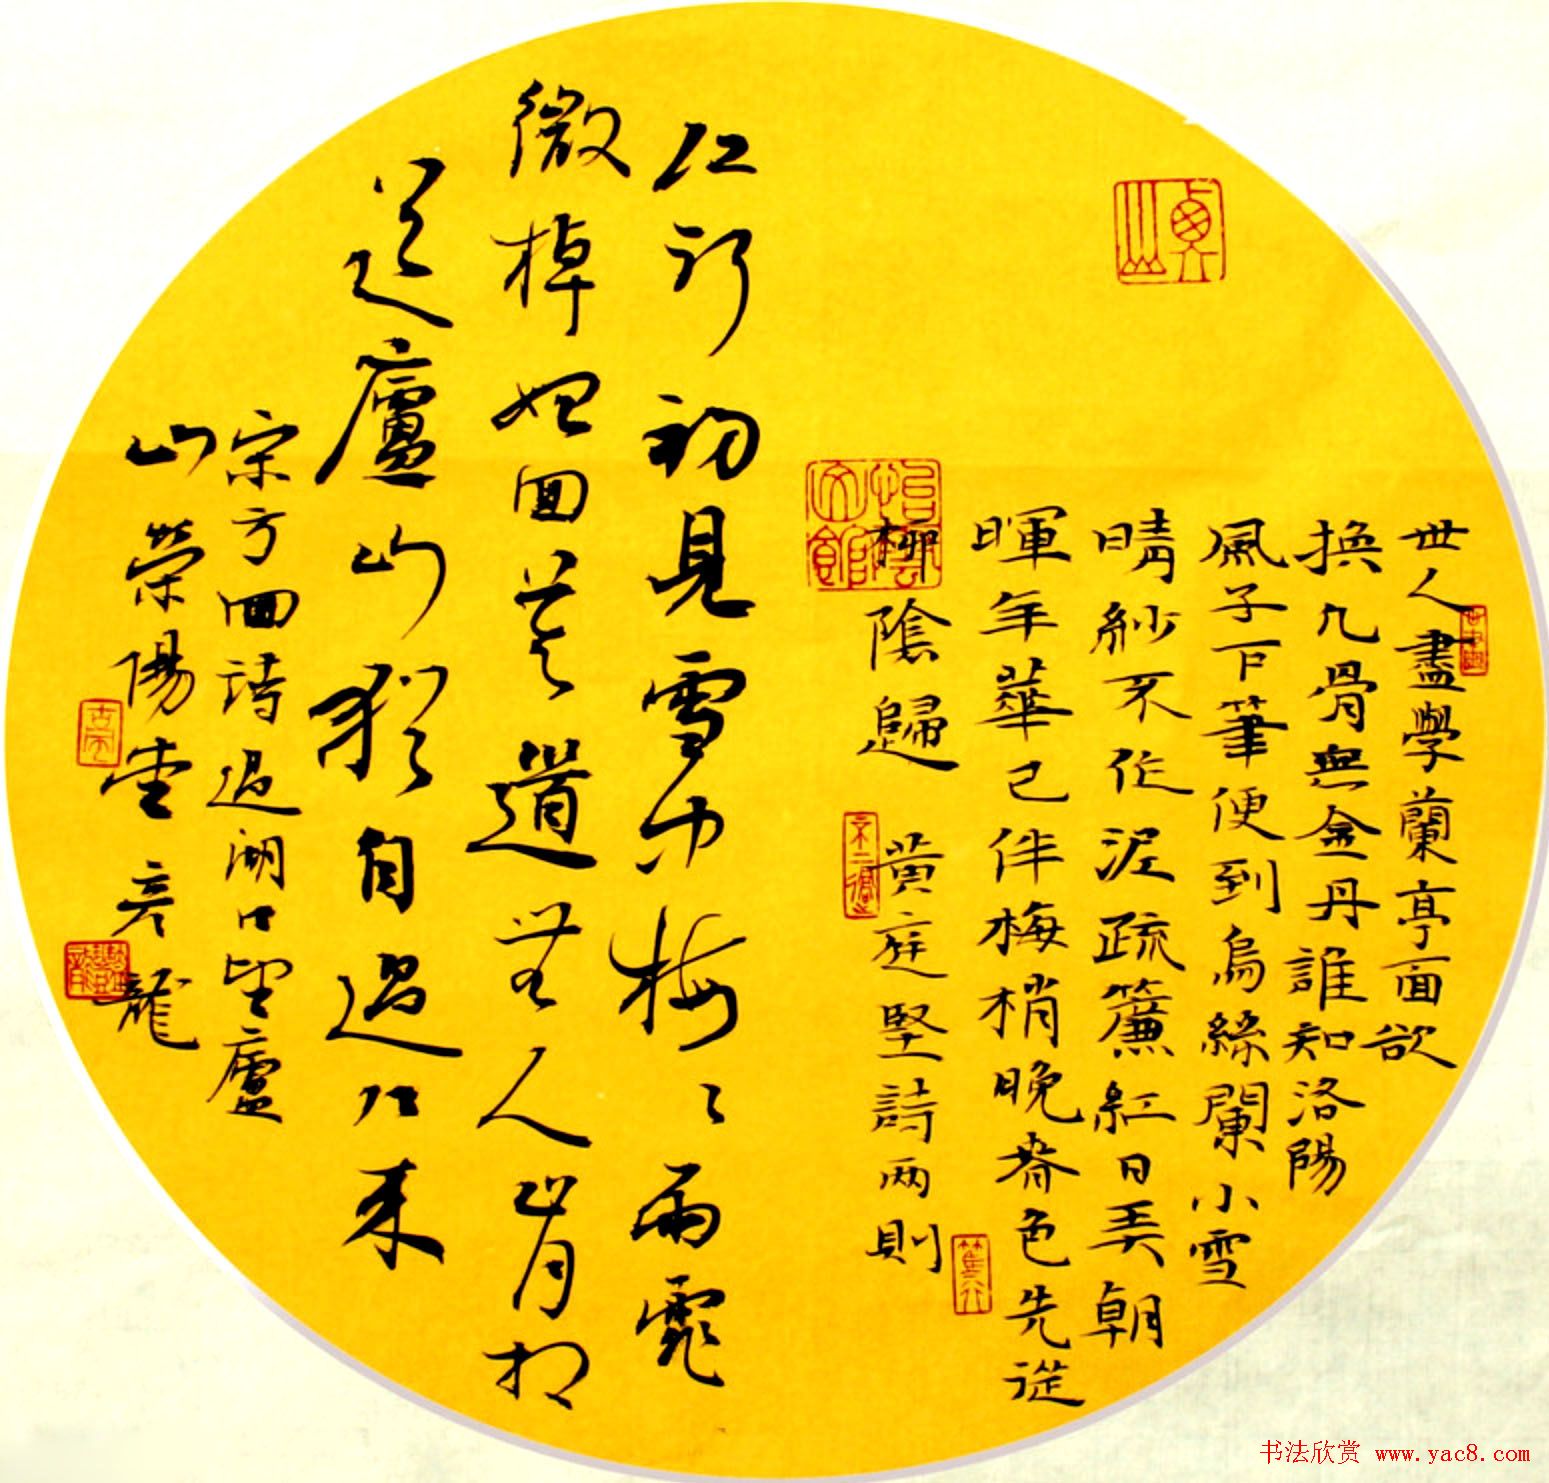 世人盡學蘭亭面欲
換凡骨無金丹誰知洛陽
風子下筆便到烏絲闌小雪
晴紗不作泥疏簾紅日弄朝
暉年華已伴梅梢晚春色先從
柳陰歸 黄庭堅詩两則
江行初見雪中梅々雨霏
微棹始回莫道無人肯相
送廬山猶自過江来
宋方回詩過湖口望廬
山榮陽堂彦龍
书法欣赏 www.yac8.com